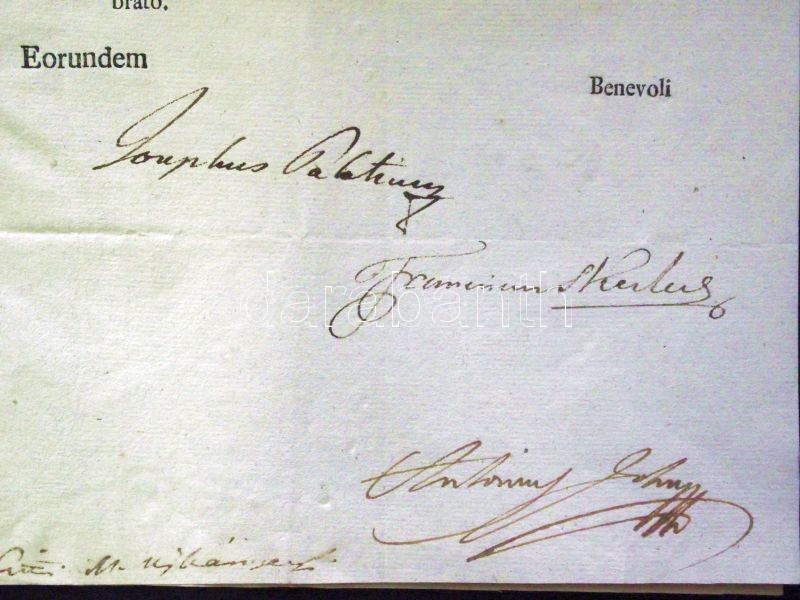 brato.
Eorundem
Benevoli
Josephus Palatinus
Franciscus
darabanth
Antonius